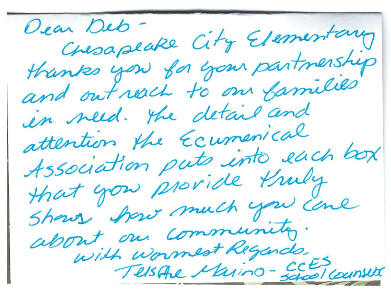 Dear Deb -
Chesapeake City Elementary
thanks you for your partnership
and outreach to our families
in need. The detail and
attention the Ecumenical
Association puts into each box
that you provide truly
shows how much you care
about our community.
With Warmest Regards,
Marino - CCES
School Counselor